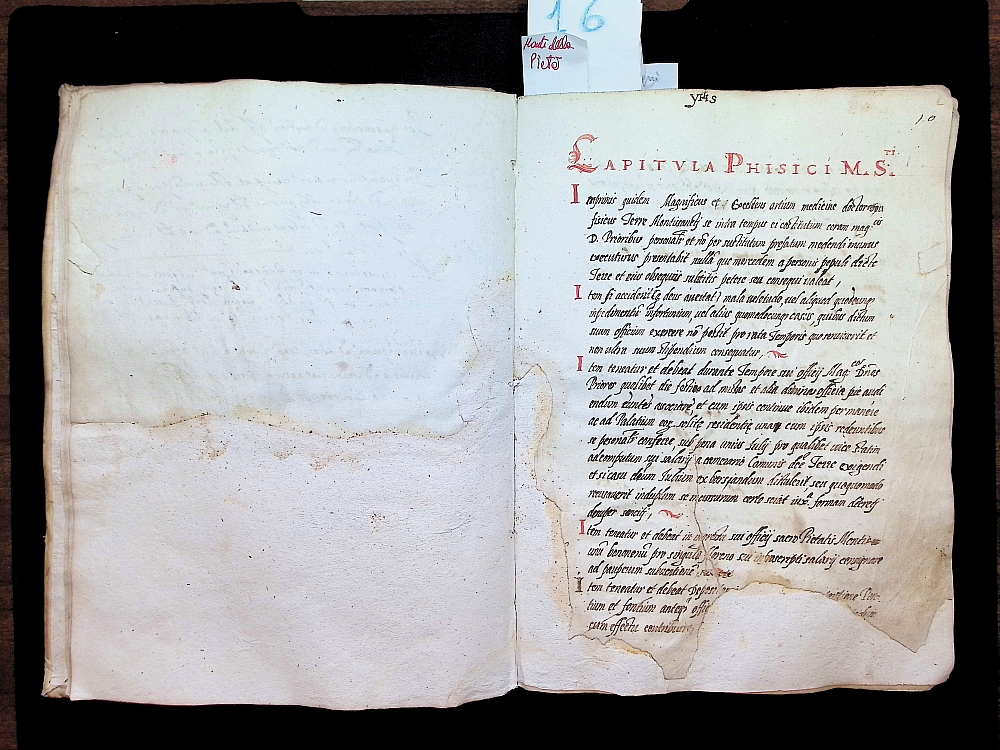 16
Monte della
Pietà
yhs
10
CAPITVLA PHISICI M. S.TI
Inprimis quidem Magnificus et Excellens artium medicine doctor
fisicus Terre Montisrantij se infra tempus ei costitutum coram mag.cis
D. Prioribus personalr et nō per substitutum prefatum medendi munus
executurus presentabit nullā que mercedem a personis populi dicte
Terre et eius obsequiis subditis petere seu consequi valeat,
Item si acciderit (qd deus avertat) mala valetudo, vel aliquot quodcunq
impedimentū infortunium, vel alius quomodocunq casus, quibus dictum
suum officium exercere nō possit pro rata Temporis que servierit et
non ultra suum stipendium consequatur,
Item teneatur et debeat durante Tempore sui officij Mag.cos Dños
Priores qualibet die festivo ad missas et alia divina officia pie audi
endum euntes associare, et cum ipsis continue ibidem permanere
ac ad Palatium solite residentie unaq cum ipsis redeuntibus
se personalr conferre, sub pena unius Iulij pro qualibet vice statim
ad computum sui salarij a camerario Comunis dce Terre exigendi
et si casu dictum Iulium exbursandum distulerit seu quoquomodo
recusaverit induplum se incursurum certo sciat iuxa formam decreti
desuper sanciti,
Item teneatur et debeat in introitu sui officij sacro Pietatis Monti
unū bonenenū pro singulo floreno sui infrascripti salarij consignare
ad pauperum subventionē
Item teneatur et debeat
tium et fontium
cum effectu contribuere